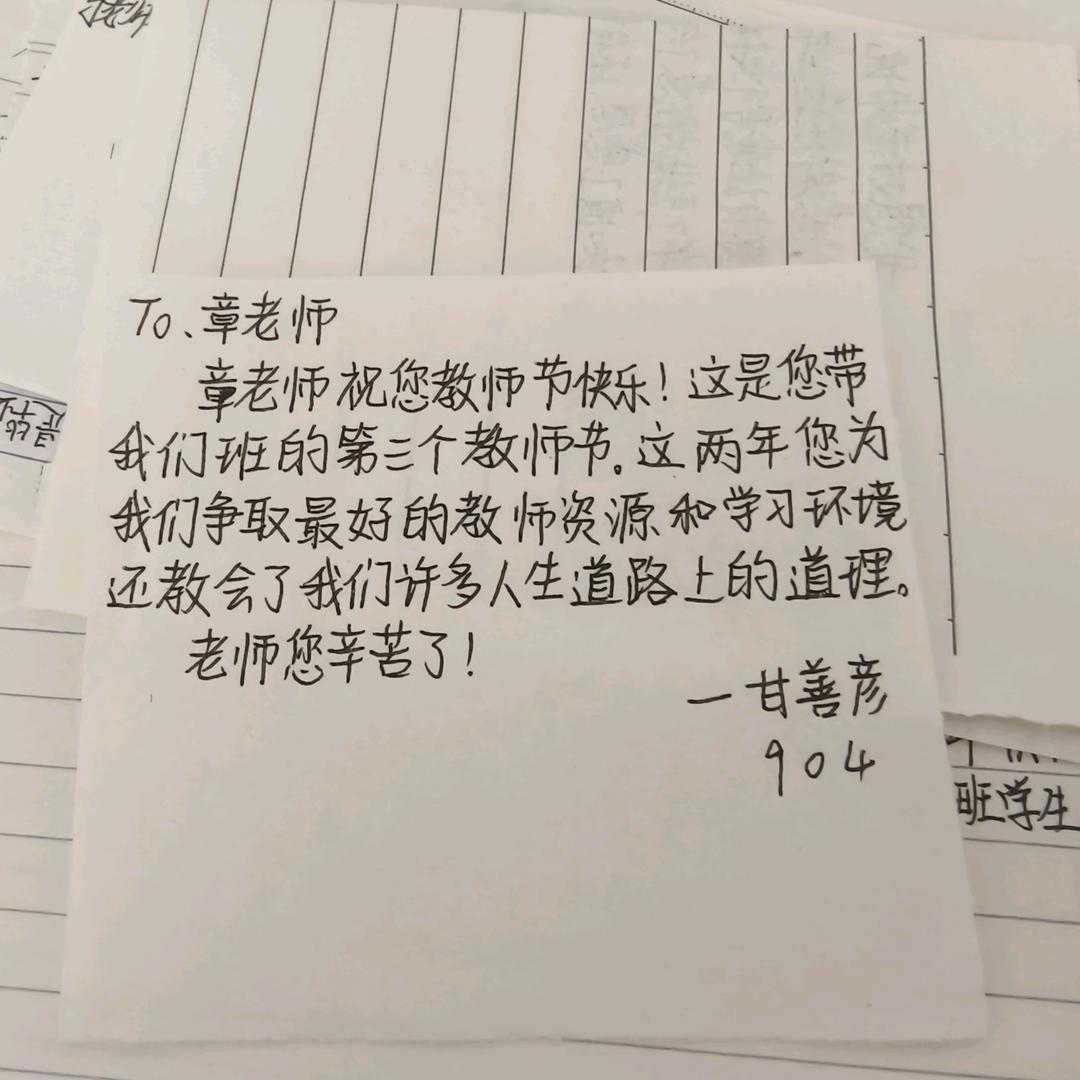 To、章老师
章老师祝您教师节快乐！这是您带
我们班的第三个教师节。这两年您为
我们争取最好的教师资源和学习环境
还教会了我们许多人生道路上的道理。
老师您辛苦了！
一甘善彦
904
班学生